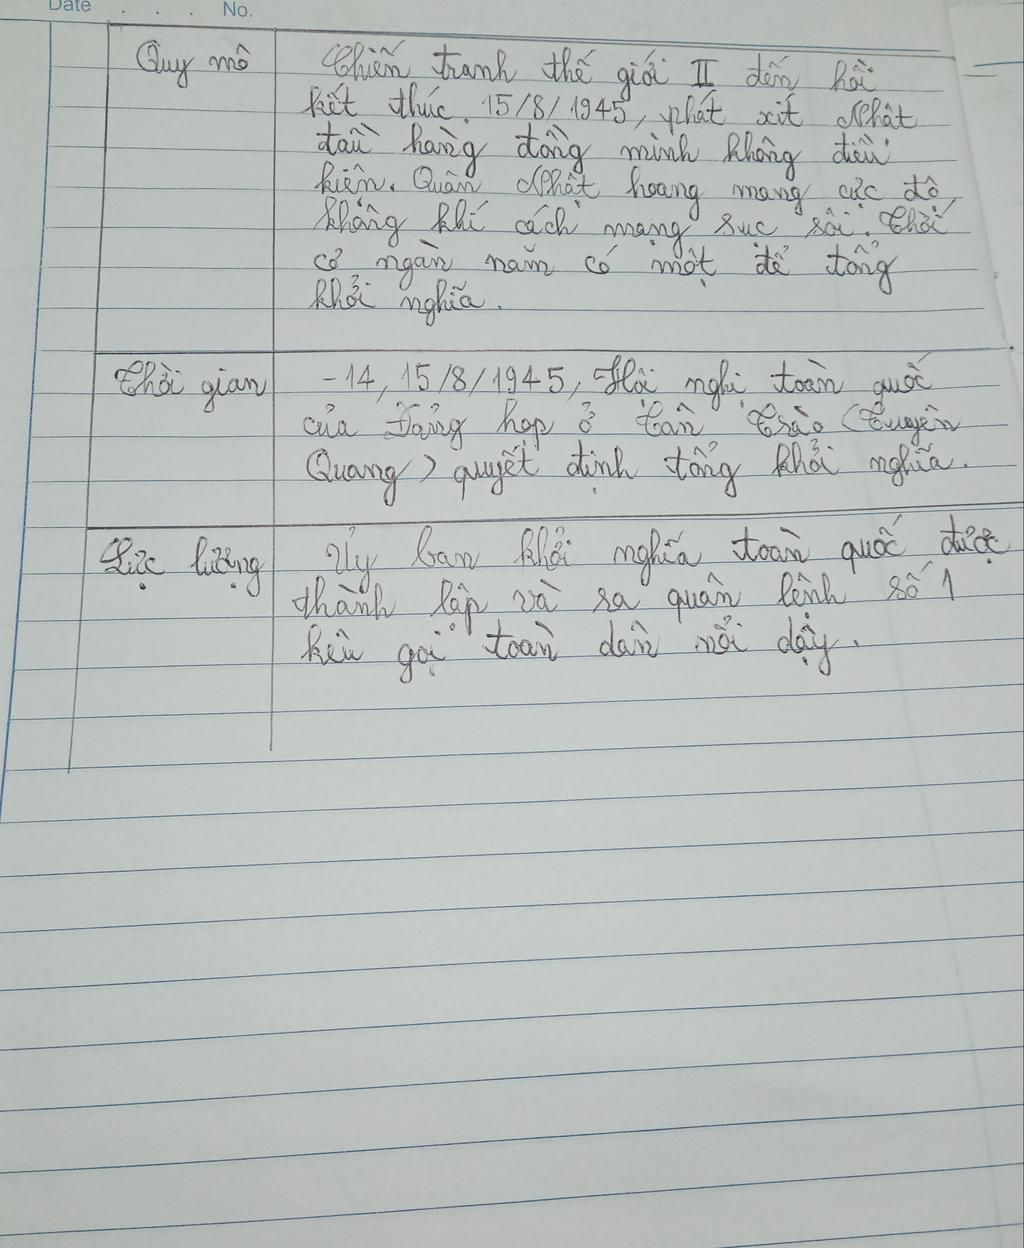 Date . . . No.
Quy mô
Chiến tranh thế giới II đến hồi
kết thúc. 15/8/1945, phát xít Nhật
đầu hàng đồng minh không điều
kiện. Quân Nhật hoang mang cực độ,
không khí cách mạng sục sôi. Thời
cơ ngàn năm có một để tổng
khởi nghĩa.
Thời gian
-14, 15/8/1945, Hội nghị toàn quốc
của Đảng họp ở Tân Trào (Tuyên
Quang) quyết định tổng khởi nghĩa.
Lực lượng
Ủy ban khởi nghĩa toàn quốc được
thành lập và ra quân lệnh số 1
kêu gọi toàn dân nổi dậy.